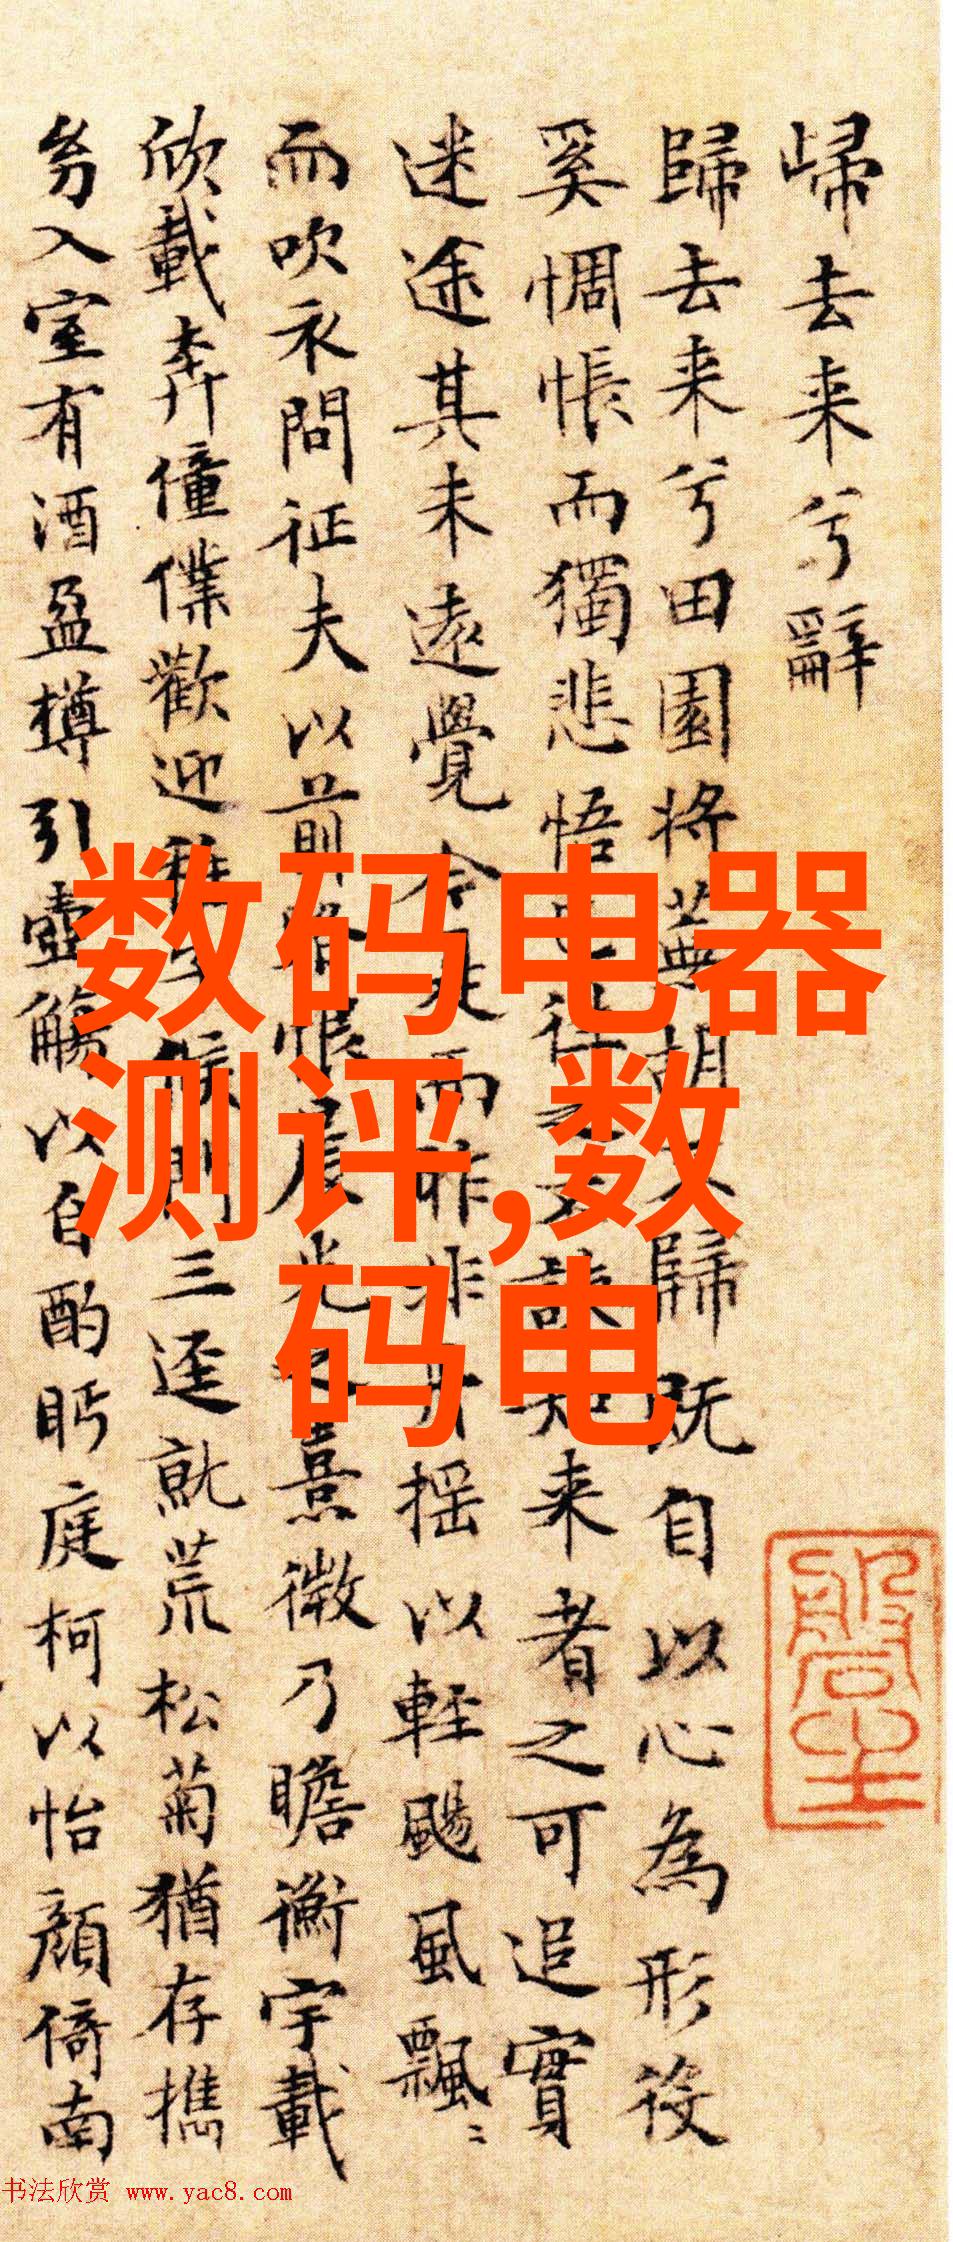 歸去来兮辭
歸去来兮田園将蕪胡不歸既自以心為形役
奚惆悵而獨悲悟已往之不諫知来者之可追實
迷途其未遠覺今是而昨非舟揺以軽颺風飄〻
而吹衣問征夫以前路恨晨光之熹微乃瞻衡宇載
欣載奔僮僕歡迎稚子候門三逕就荒松菊猶存携
㓜入室有酒盈樽引壺觴以自酌眄庭柯以怡顔倚南
数码电器
测评,数
码电
书法欣赏 www.yac8.com